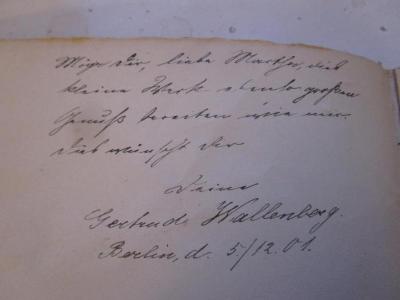 Möge Dir, liebe Martha, dies
kleine Werk ebenso großen
Genuß bereiten wie mir.
Dies wünscht Dir
Deine
Gertrud Wallenberg.
Berlin, d. 5/12.01.